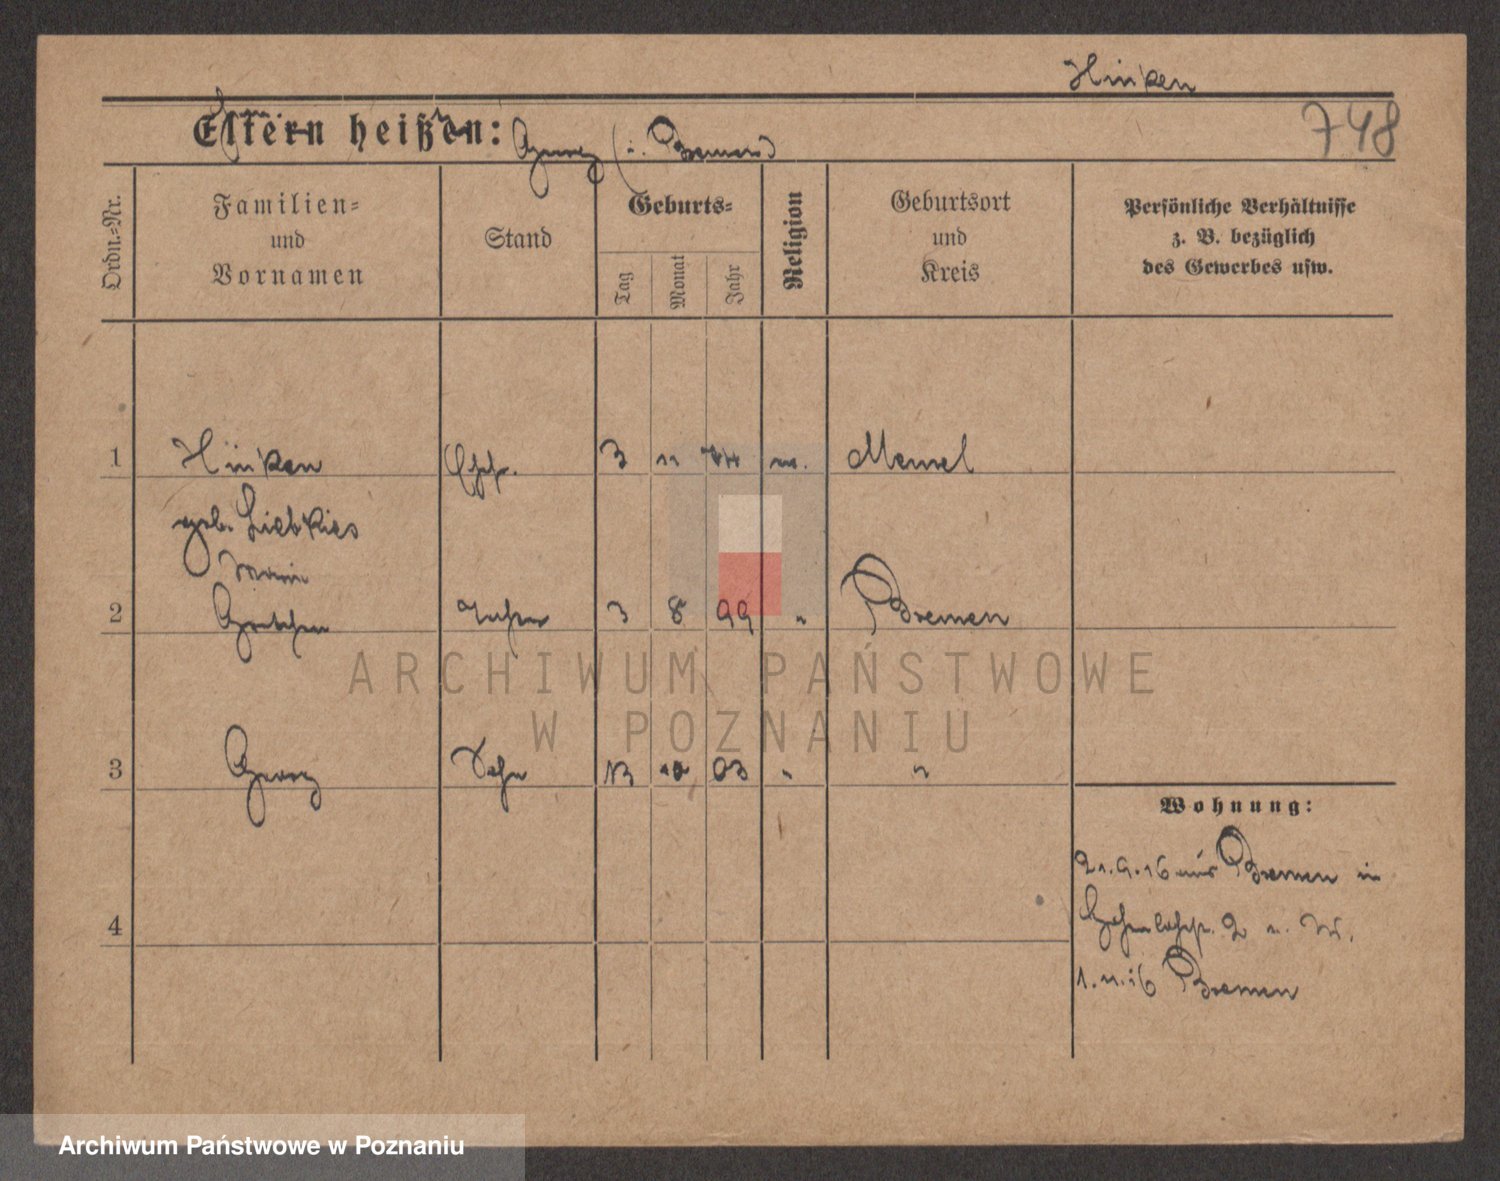 Hinken
748
Eltern heißen: Georg (i. Bremen)
Ordn.-Nr.
Familien-
und
Vornamen
Stand
Geburts-
Tag
Monat
Jahr
Religion
Geburtsort
und
Kreis
Persönliche Verhältnisse
z. B. bezüglich
des Gewerbes usw.
1 Hinken 3 11 74 Memel
geb. Liebkies
Marie
2 Gretchen Tochter 3 8 99 " Bremen
3 Georg Sohn 13 10 03 " "
Wohnung:
21.9.16 aus Bremen in
2
1.11.16 Bremen
4
ARCHIWUM PAŃSTWOWE
W POZNANIU
Archiwum Państwowe w Poznaniu